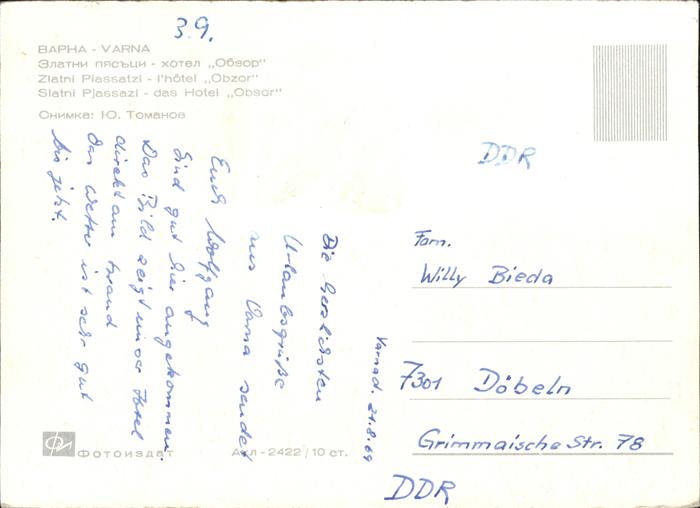 3.9.
ВАРНА - VARNA
Златни пясъци - хотел „Обзор"
Zlatni Piassatzi - l'hôtel „Obzor"
Slatni Pjassazi - das Hotel „Obsor"
Снимка: Ю. Томанов
DDR
Varna d. 21.8.69
Die herzlichsten
Urlaubsgrüße
aus Varna sendet
Euch Wolfgang
Sind gut hier angekommen.
Das Bild zeigt unser Hotel
direkt am Strand
das Wetter ist sehr gut
bis jetzt.
Fam.
Willy Bieda
7301 Döbeln
Grimmaische Str. 78
DDR
ФОТОИЗДАТ
Акл - 2422 / 10 ст.